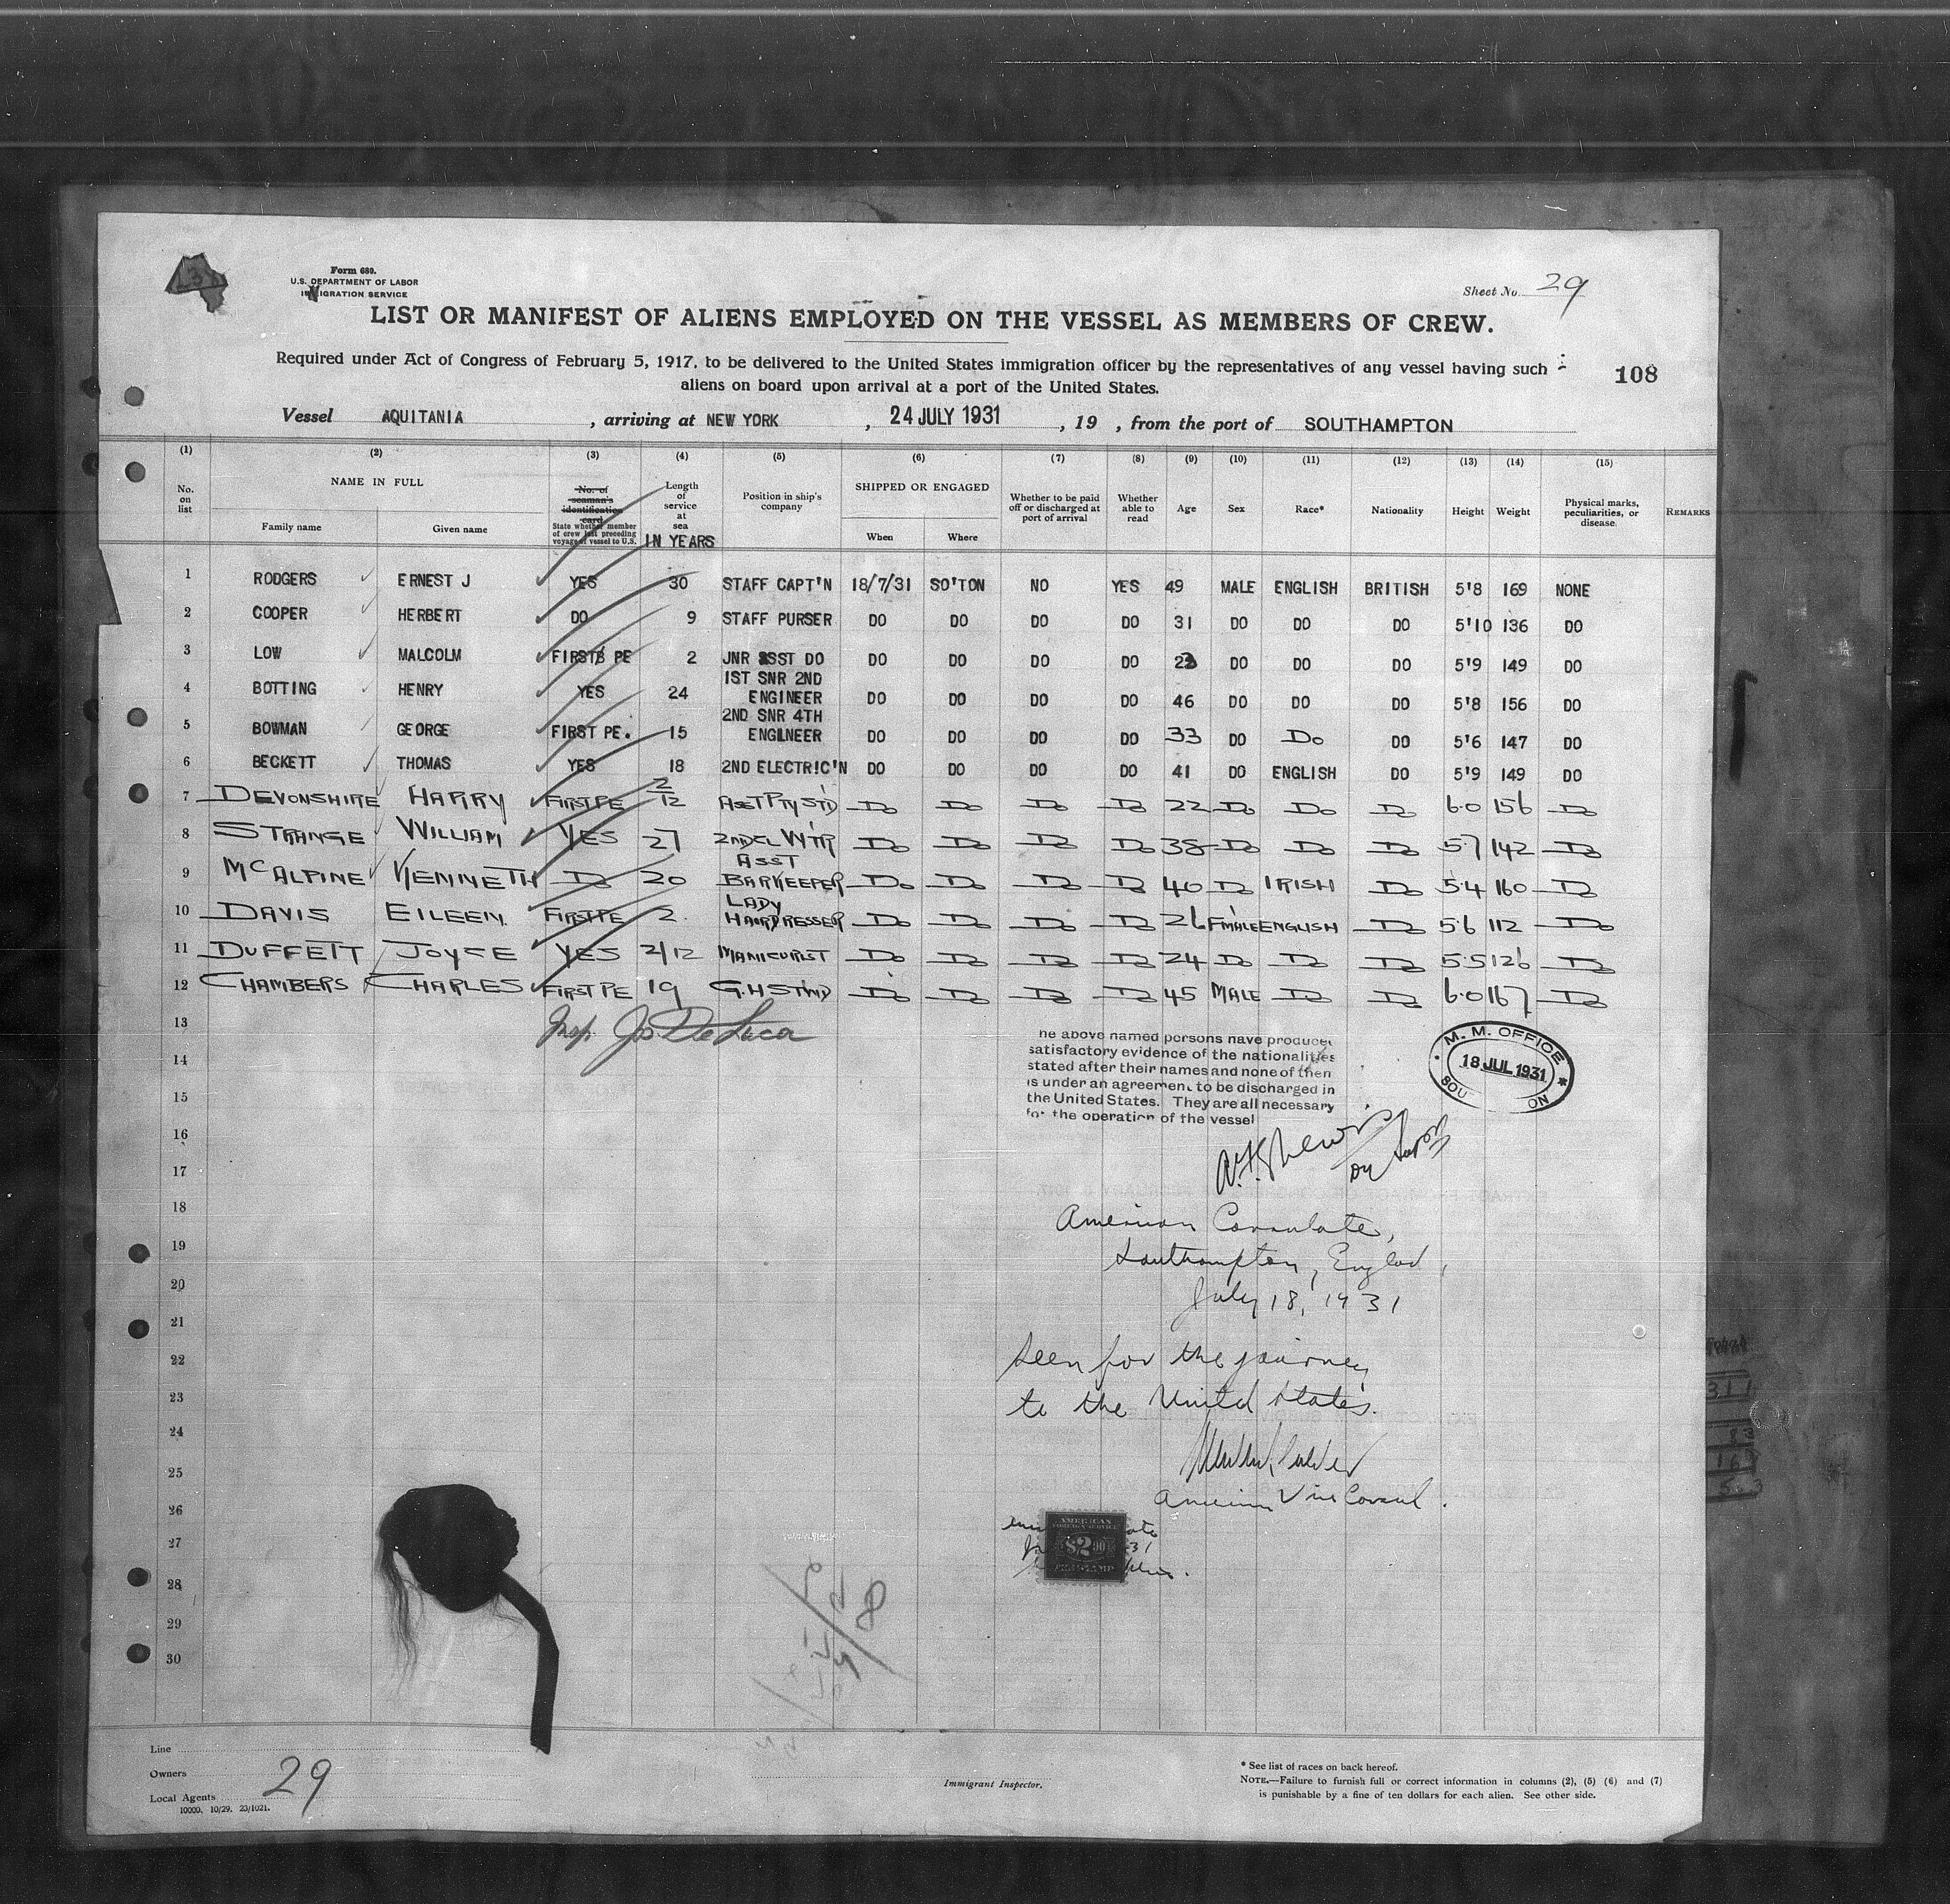 Form 680.
U.S. DEPARTMENT OF LABOR
IMMIGRATION SERVICE
Sheet No. 29
LIST OR MANIFEST OF ALIENS EMPLOYED ON THE VESSEL AS MEMBERS OF CREW.
Required under Act of Congress of February 5, 1917, to be delivered to the United States immigration officer by the representatives of any vessel having such
aliens on board upon arrival at a port of the United States.
108
Vessel AQUITANIA , arriving at NEW YORK , 24 JULY 1931 , 19 , from the port of SOUTHAMPTON
(1) (2) (3) (4) (5) (6) (7) (8) (9) (10) (11) (12) (13) (14) (15)
No. on list
NAME IN FULL
Family name Given name
No. of seaman's identification card
State whether member of crew last preceding voyage of vessel to U.S.
Length of service at sea
IN YEARS
Position in ship's company
SHIPPED OR ENGAGED
When Where
Whether to be paid off or discharged at port of arrival
Whether able to read
Age Sex Race* Nationality Height Weight
Physical marks, peculiarities, or disease.
REMARKS
1 RODGERS ERNEST J YES 30 STAFF CAPT'N 18/7/31 SO'TON NO YES 49 MALE ENGLISH BRITISH 5'8 169 NONE
2 COOPER HERBERT DO 9 STAFF PURSER DO DO DO DO 31 DO DO DO 5'10 136 DO
3 LOW MALCOLM FIRST PE 2 JNR ASST DO DO DO DO DO DO DO DO 5'9 149 DO
4 BOTTING HENRY YES 24 1ST SNR 2ND ENGINEER DO DO DO DO 46 DO DO DO 5'8 156 DO
5 BOWMAN GEORGE FIRST PE. 15 2ND SNR 4TH ENGINEER DO DO DO DO 33 DO Do DO 5'6 147 DO
6 BECKETT THOMAS YES 18 2ND ELECTRIC'N DO DO DO DO 41 DO ENGLISH DO 5'9 149 DO
7 DEVONSHIRE HARRY FIRST PE 2/12 ASST PTY STD Do Do Do Do 22 Do Do Do 6.0 156 Do
8 STRANGE WILLIAM YES 27 2ND CL WTR Do Do Do Do 38 Do Do Do 5.7 142 Do
9 MCALPINE KENNETH Do 20 ASST BARKEEPER Do Do Do Do 40 Do IRISH Do 5.4 160 Do
10 DAVIS EILEEN FIRST PE 2. LADY HAIRDRESSER Do Do Do Do 26 F'MALE ENGLISH Do 5.6 112 Do
11 DUFFETT JOYCE YES 2/12 MANICURIST Do Do Do Do 24 Do Do Do 5.5 126 Do
12 CHAMBERS CHARLES FIRST PE 19 G.H STWD Do Do Do Do 45 MALE Do Do 6.0 167 Do
13
Insp. Jos De Luca
he above named persons have produced
satisfactory evidence of the nationalities
stated after their names and none of them
is under an agreement to be discharged in
the United States. They are all necessary
for the operation of the vessel
M. M. OFFICE
18 JUL 1931
14
15
16
17
18
American Consulate,
19
Southampton, England,
20
July 18, 1931
21
22
Seen for the journey
23
to the United States.
24
25
American Vice Consul.
26
27
AMERICAN
FOREIGN SERVICE
$2.00
FEE STAMP
28
29
30
Line
Owners
Local Agents
29
10000. 10/29. 23/1021.
Immigrant Inspector.
* See list of races on back hereof.
NOTE.—Failure to furnish full or correct information in columns (2), (5) (6) and (7)
is punishable by a fine of ten dollars for each alien. See other side.